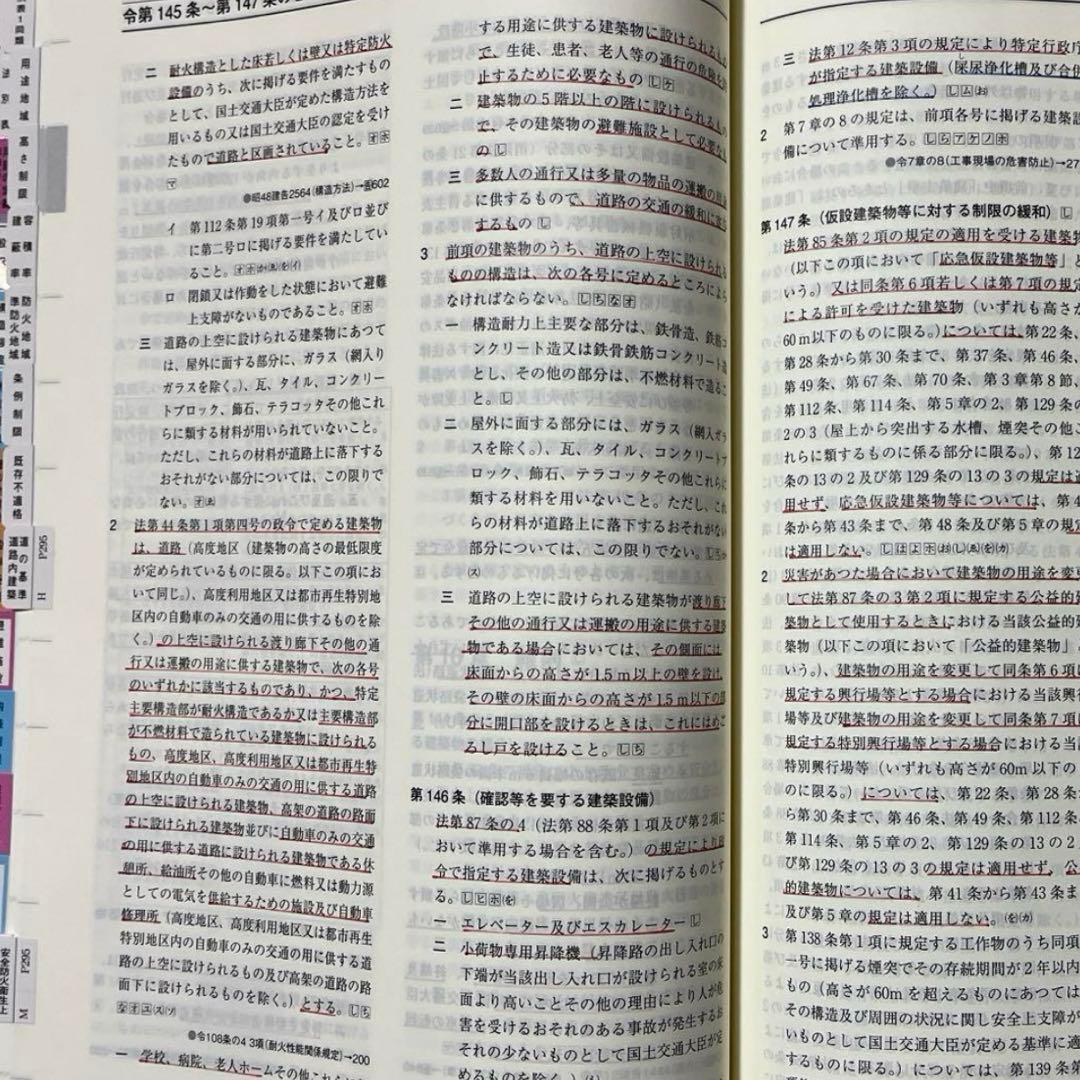 令第145条～第147条の
二 耐火構造とした床若しくは壁又は特定防火
設備のうち、次に掲げる要件を満たすもの
として、国土交通大臣が定めた構造方法を
用いるもの又は国土交通大臣の認定を受け
たもので道路と区画されていること。オホ
マ
●昭48建告2564(構造方法)→告602
イ 第112条第19項第一号イ及びロ並び
に第二号ロに掲げる要件を満たしてい
ること。
ロ 閉鎖又は作動をした状態において避難
上支障がないものであること。オホ
三 道路の上空に設けられる建築物にあつて
は、屋外に面する部分に、ガラス（網入り
ガラスを除く。）、瓦、タイル、コンクリー
トブロック、飾石、テラコッタその他これ
らに類する材料が用いられていないこと。
ただし、これらの材料が道路上に落下する
おそれがない部分については、この限りで
ない。
2 法第44条第1項第四号の政令で定める建築物
は、道路（高度地区（建築物の高さの最低限度
が定められているものに限る。以下この項にお
いて同じ。）、高度利用地区又は都市再生特別地
区内の自動車のみの交通の用に供するものを除
く。）の上空に設けられる渡り廊下その他の通
行又は運搬の用途に供する建築物で、次の各号
のいずれかに該当するものであり、かつ、特定
主要構造部が耐火構造であるか又は主要構造部
が不燃材料で造られている建築物に設けられる
もの、高度地区、高度利用地区又は都市再生特
別地区内の自動車のみの交通の用に供する道路
の上空に設けられる建築物、高架の道路の路面
下に設けられる建築物並びに自動車のみの交通
の用に供する道路に設けられる建築物である休
憩所、給油所その他の自動車に燃料又は動力源
としての電気を供給するための施設及び自動車
修理所（高度地区、高度利用地区又は都市再生
特別地区内の自動車のみの交通の用に供する道
路の上空に設けられるもの及び高架の道路の路
面下に設けられるものを除く。）とする。しち
なオユス(ソ)
●令108条の4 3項(耐火性能関係規定)→200
一 学校、病院、老人ホームその他これらに
する用途に供する建築物に設けられるもの
で、生徒、患者、老人等の通行の危険を防
止するために必要なもの しケ
二 建築物の5階以上の階に設けられるもの
で、その建築物の避難施設として必要なも
の し
三 多数人の通行又は多量の物品の運搬の用途
に供するもので、道路の交通の緩和に寄与
するもの し
3 前項の建築物のうち、道路の上空に設けられる
ものの構造は、次の各号に定めるところによら
なければならない。しちなオ
一 構造耐力上主要な部分は、鉄骨造、鉄筋コ
ンクリート造又は鉄骨鉄筋コンクリート造
とし、その他の部分は、不燃材料で造るこ
と。し
二 屋外に面する部分には、ガラス（網入ガラ
スを除く。）、瓦、タイル、コンクリートブ
ロック、飾石、テラコッタその他これらに
類する材料を用いないこと。ただし、これ
らの材料が道路上に落下するおそれがない
部分については、この限りでない。
(ス)
三 道路の上空に設けられる建築物が渡り廊下
その他の通行又は運搬の用途に供する建築
物である場合においては、その側面には、
床面からの高さが1.5m以上の壁を設け、
その壁の床面からの高さが1.5m以下の部
分に開口部を設けるときは、これにはめご
ろし戸を設けること。しち
第146条（確認等を要する建築設備）
法第87条の4（法第88条第1項及び第2項に
おいて準用する場合を含む。）の規定により政
令で指定する建築設備は、次に掲げるものとす
る。しヒホ(を)
一 エレベーター及びエスカレーター し
二 小荷物専用昇降機（昇降路の出し入れ口の
下端が当該出し入れ口が設けられる室の床
面より高いことその他の理由により人が危
害を受けるおそれのある事故が発生するお
それの少ないものとして国土交通大臣が定
めるものを除く。）
三 法第12条第3項の規定により特定行政庁
が指定する建築設備（屎尿浄化槽及び合併
処理浄化槽を除く。）
2 第7章の8の規定は、前項各号に掲げる建築設
備について準用する。しらアケノホ
●令7章の8(工事現場の危害防止)→27
第147条（仮設建築物等に対する制限の緩和）し
法第85条第2項の規定の適用を受ける建築物
（以下この項において「応急仮設建築物等」と
いう。）又は同条第6項若しくは第7項の規定
による許可を受けた建築物（いずれも高さが
60m以下のものに限る。）については、第22条、
第28条から第30条まで、第37条、第46条、
第49条、第67条、第70条、第3章第8節、
第112条、第114条、第5章の2、第129条の
2の3（屋上から突出する水槽、煙突その他こ
れらに類するものに係る部分に限る。）、第12
条の13の2及び第129条の13の3の規定は適
用せず、応急仮設建築物等については、第4
条から第43条まで、第48条及び第5章の規定
は適用しない。
2 災害があつた場合において建築物の用途を変更
して法第87条の3第2項に規定する公益的建
築物として使用するときにおける当該公益的建
築物（以下この項において「公益的建築物」と
いう。）、建築物の用途を変更して同条第6項
規定する興行場等とする場合における当該興行
場等及び建築物の用途を変更して同条第7項
規定する特別興行場等とする場合における当該
特別興行場等（いずれも高さが60m以下の
のに限る。）については、第22条、第28条
ら第30条まで、第46条、第49条、第112条、
第114条、第5章の2、第129条の13の2
び第129条の13の3の規定は適用せず、公
的建築物については、第41条から第43条ま
及び第5章の規定は適用しない。(を)(カ)
3 第138条第1項に規定する工作物のうち同項
一号に掲げる煙突でその存続期間が2年以内
もの（高さが60mを超えるものにあつては
その構造及び周囲の状況に関し安全上支障が
いものとして国土交通大臣が定める基準に適
するものに限る。）については、第139条第
用途地域
高さ制限
法別表
容積率
建蔽率
防火地域
準防火地域
条例制限
既存不適格
道の基準
道路内建築
P295
H
安全防火衛生上
P295
M